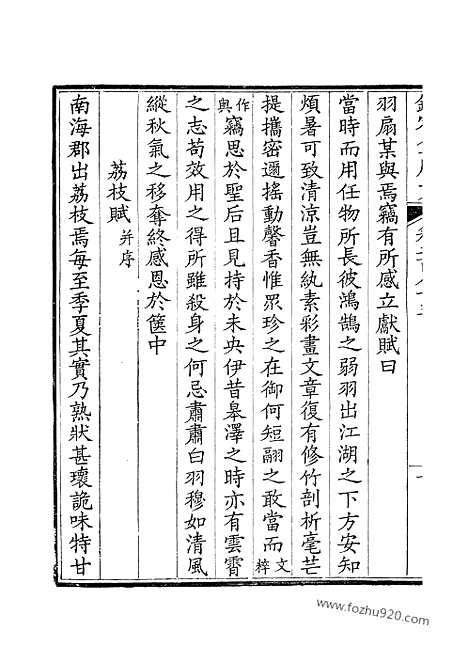 羽扇某與焉竊有所感立獻賦曰
當時而用任物所長彼鴻鵠之弱羽出江湖之下方安知
煩暑可致清涼豈無紈素彩畫文章復有修竹剖析毫芒
提攜密邇搖動馨香惟眾珍之在御何短翮之敢當而文粹
作與竊思於聖后且見持於未央伊昔皋澤之時亦有雲霄
之志苟效用之得所雖殺身之何忌肅肅白羽穆如清風
縱秋氣之移奪終感恩於篋中
荔枝賦并序
南海郡出荔枝焉每至季夏其實乃熟狀甚瓌詭味特甘
www.fozhu920.com